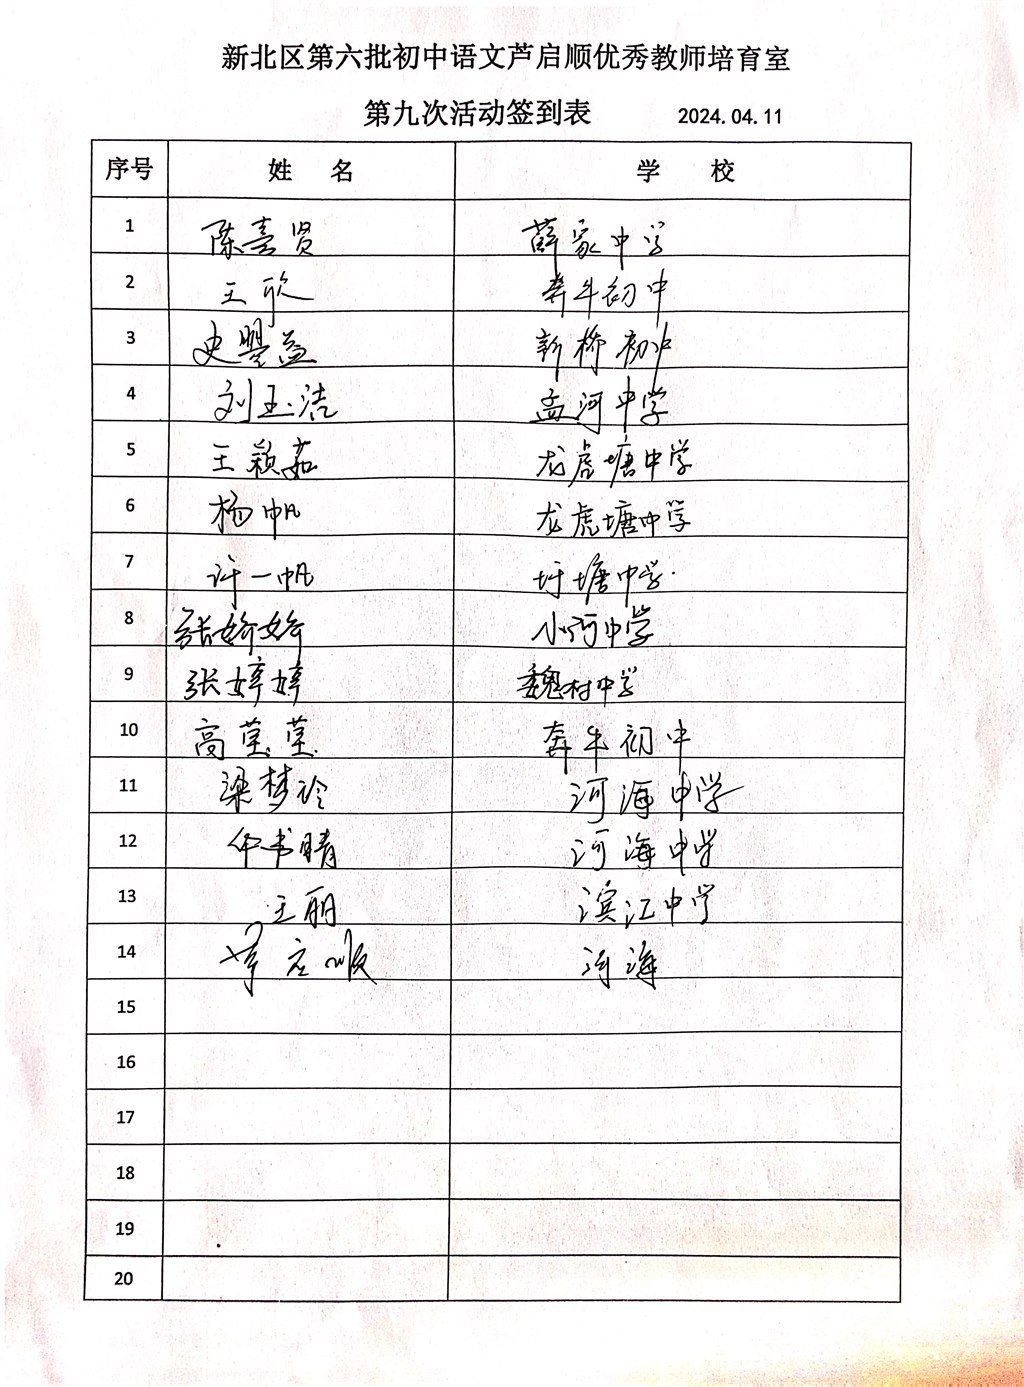 新北区第六批初中语文芦启顺优秀教师培育室
第九次活动签到表 2024.04.11
序号 姓 名 学 校
1 陈熹贤 薛家中学
2 王欣 奔牛初中
3 史曌益 新桥初中
4 刘玉洁 孟河中学
5 王颖茹 龙虎塘中学
6 杨帆 龙虎塘中学
7 许一帆 圩塘中学
8 张娇娇 小河中学
9 张婷婷 魏村中学
10 高莹莹 奔牛初中
11 梁梦 河海中学
12 仲书晴 河海中学
13 王丽 滨江中学
14 芦启顺 河海
15
16
17
18
19
20